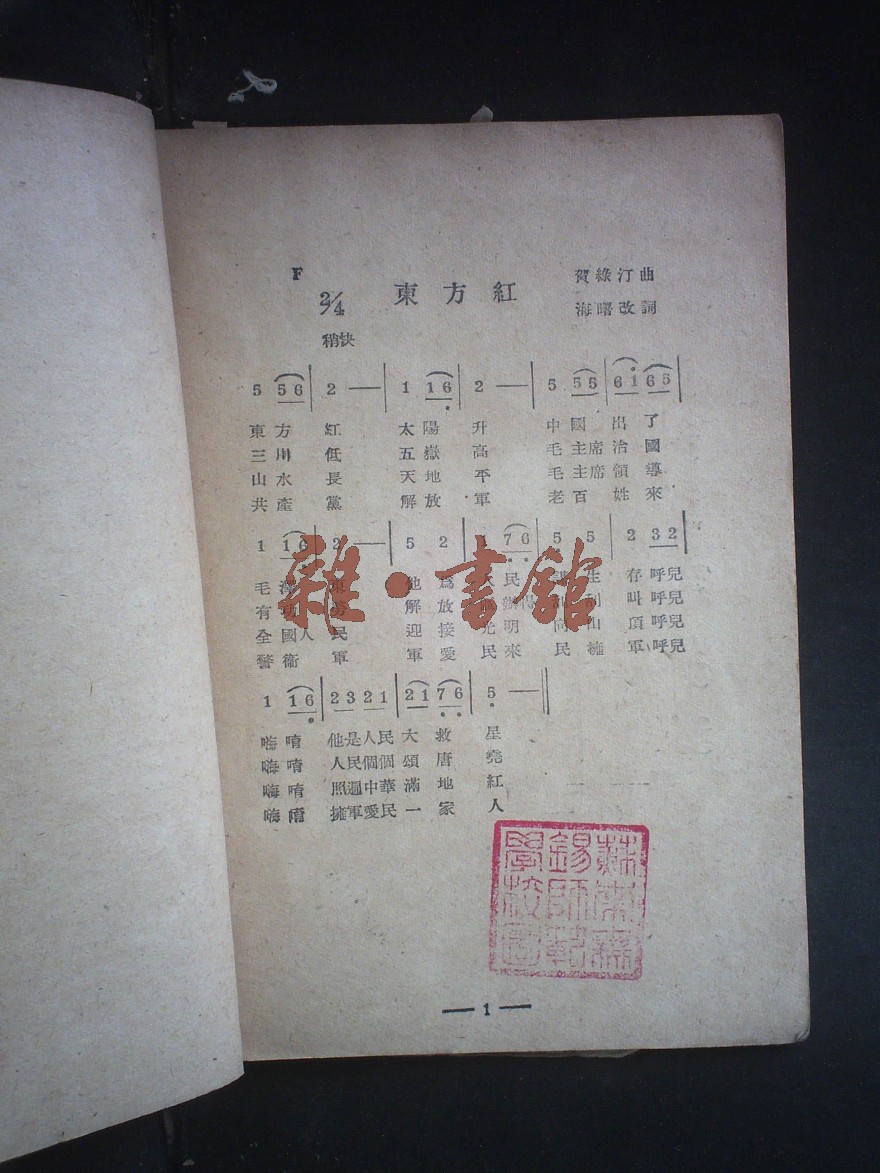 F
2/4 東方紅 賀綠汀曲
海曙改詞
稍快
5 56 | 2 — | 1 16 | 2 — | 5 55 | 61 65 |
東方紅 太陽升 中國出了
三川低 五嶽高 毛主席治國
山水長 天地平 毛主席領導
共產黨 解放軍 老百姓來
1 16 | 2 — | 5 2 | 1 76 | 5 5 | 2 32 |
毛澤東 他為人民謀生存呼兒
有 解放 叫呼兒
全國人民 迎接光明 向山頂呼兒
警衛軍 軍愛民來民擁軍呼兒
1 16 | 23 21 | 21 76 | 5 — ‖
嗨唷 他是人民大救星
嗨唷 人民個個頌唐堯
嗨唷 照遍中華滿地紅
嗨唷 擁軍愛民一家人
雜·書館
蘇南無
錫師範
學校圖
— 1 —